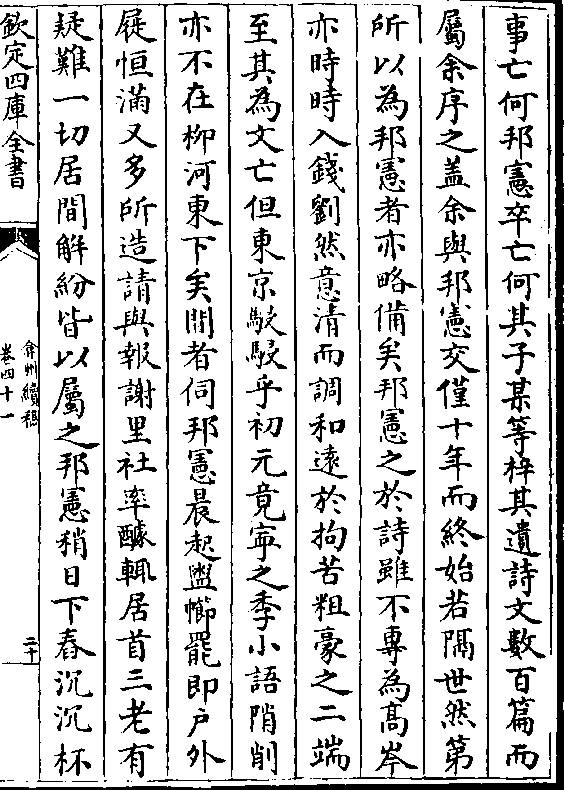 事亡何邦憲卒亡何其子某等梓其遺詩文數百篇而
屬余序之盖余與邦憲交僅十年而終始若隔世然第
所以為邦憲者亦略備矣邦憲之於詩雖不專為髙岑
亦時時入錢劉然意清而調和遠於拘苦粗豪之二端
至其為文亡但東京駸駸乎初元竟寧之季小語陗削
亦不在柳河東下矣間者伺邦憲晨起盥櫛罷即户外
屣恒滿又多所造請與報謝里社率醵輒居首三老有
疑難一切居間解紛皆以屬之邦憲稍日下舂沉沉杯
欽定四庫全書
弇州續稿
卷四十一
二十